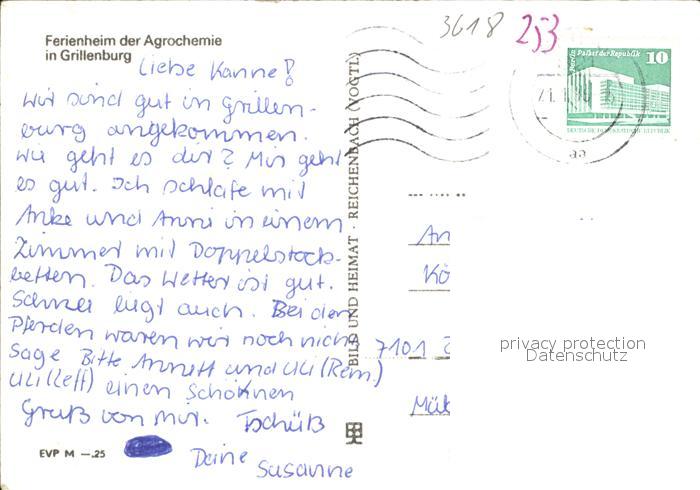 Ferienheim der Agrochemie
in Grillenburg
Liebe Kanne!
Wir sind gut in Grillen-
burg angekommen.
Wie geht es dir? Mir geht
es gut. Ich schlafe mit
Anke und Anni in einem
Zimmer mit Doppelstock-
betten. Das Wetter ist gut.
Schnee liegt auch. Bei den
Pferden waren wir noch nicht
Sage Bitte Annett und Uli (Rem.)
Uli (Leff) einen Schönen
Gruß von mir. Tschüß
Deine
Susanne
EVP M —.25
BILD UND HEIMAT · REICHENBACH (VOGTL)
3618
253
Berlin Palast der Republik
10
DEUTSCHE DEMOKRATISCHE REPUBLIK
An
Kö
7101
Mük
privacy protection
Datenschutz